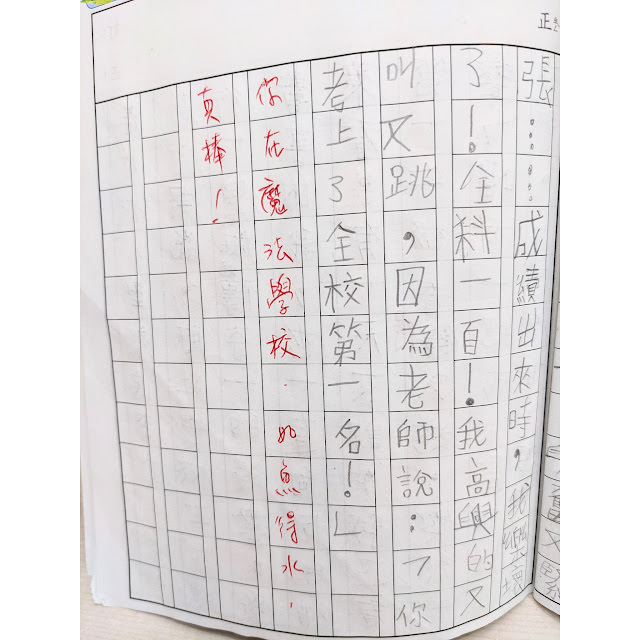 張……成績出來時，我樂壞
了！全科一百！我高興的又
叫又跳，因為老師說：「你
考上了全校第一名！」
你在魔法學校．如魚得水．
真棒！